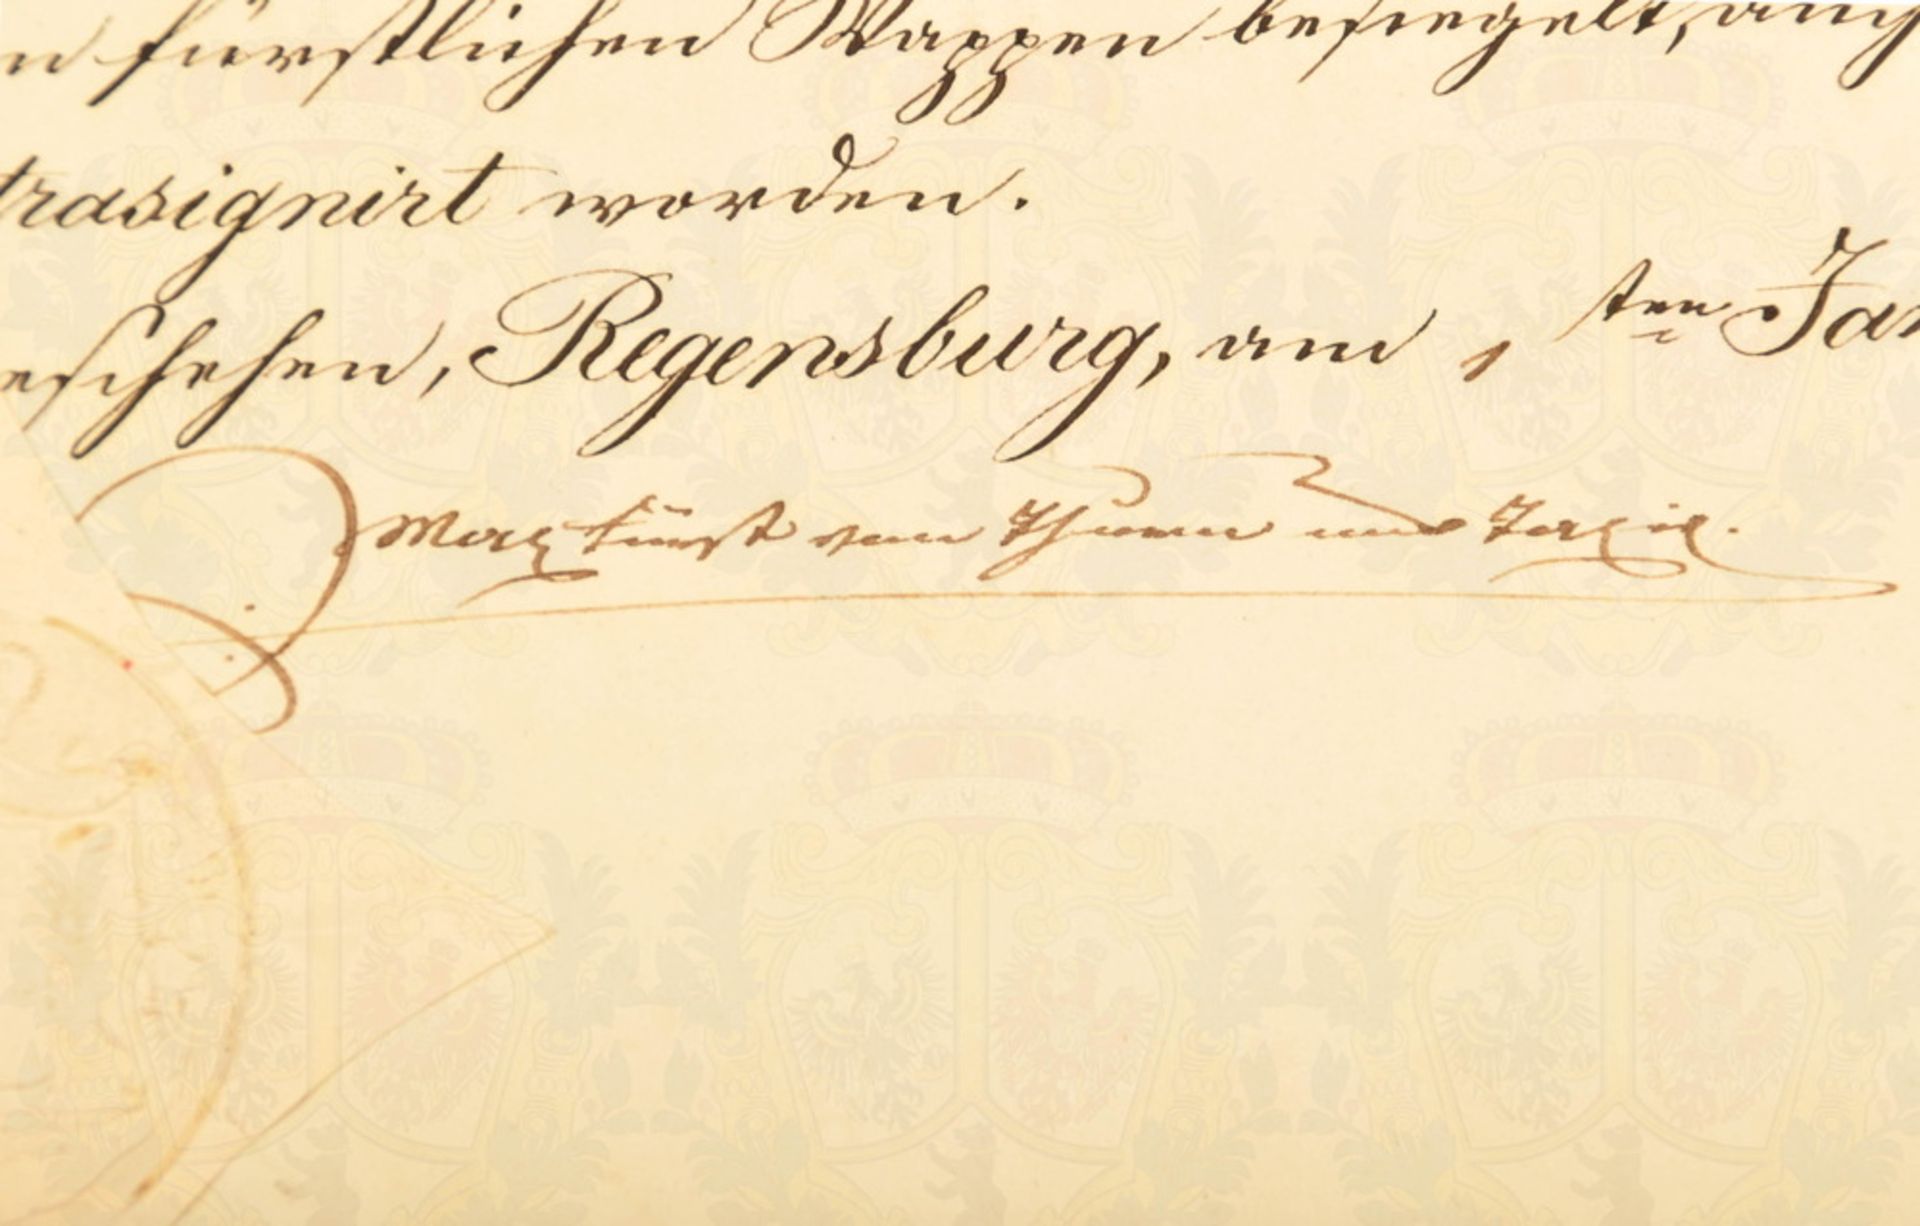 n fürstlichen Wappen besiegelt, auch
trasignirt worden.
eschehen, Regensburg, am 1ten Jan
Max Fürst von Thurn und Taxis.